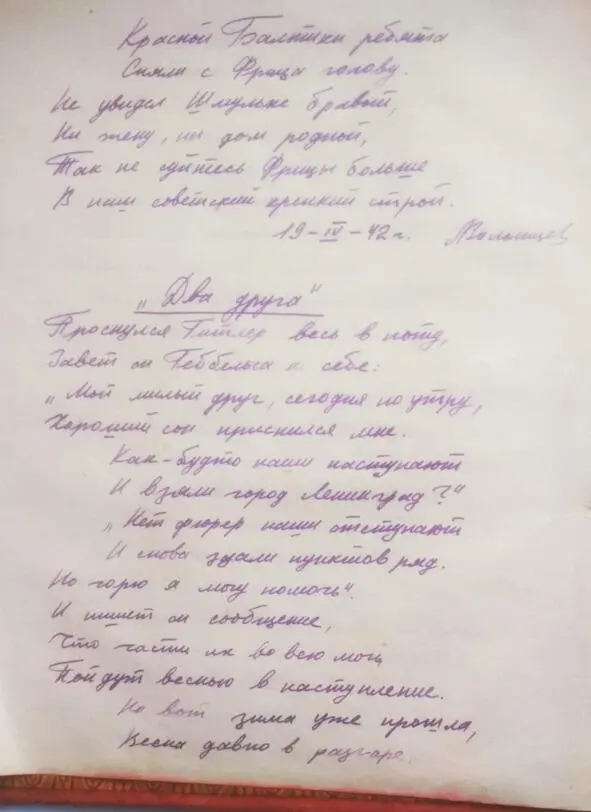 Красной Балтики ребята
Сняли с Фрица голову.
Не увидел Шмульке бравый,
Ни жену, ни дом родной,
Так не суйтесь Фрицы больше
В наш советский крепкий строй.
19-IV-42г.
„Два друга"
Проснулся Гитлер весь в поту,
Зовет он Геббельса к себе:
„Мой милый друг, сегодня по утру,
Хороший сон приснился мне.
Как-будто наши наступают
И взяли город Ленинград?"
„Нет фюрер наши отступают
И снова здали пунктов ряд.
Но горю я могу помочь".
И пишет он сообщение,
Что части их во всю мочь
Пойдут весною в наступление.
Но вот зима уже прошла,
Весна давно в разгаре.